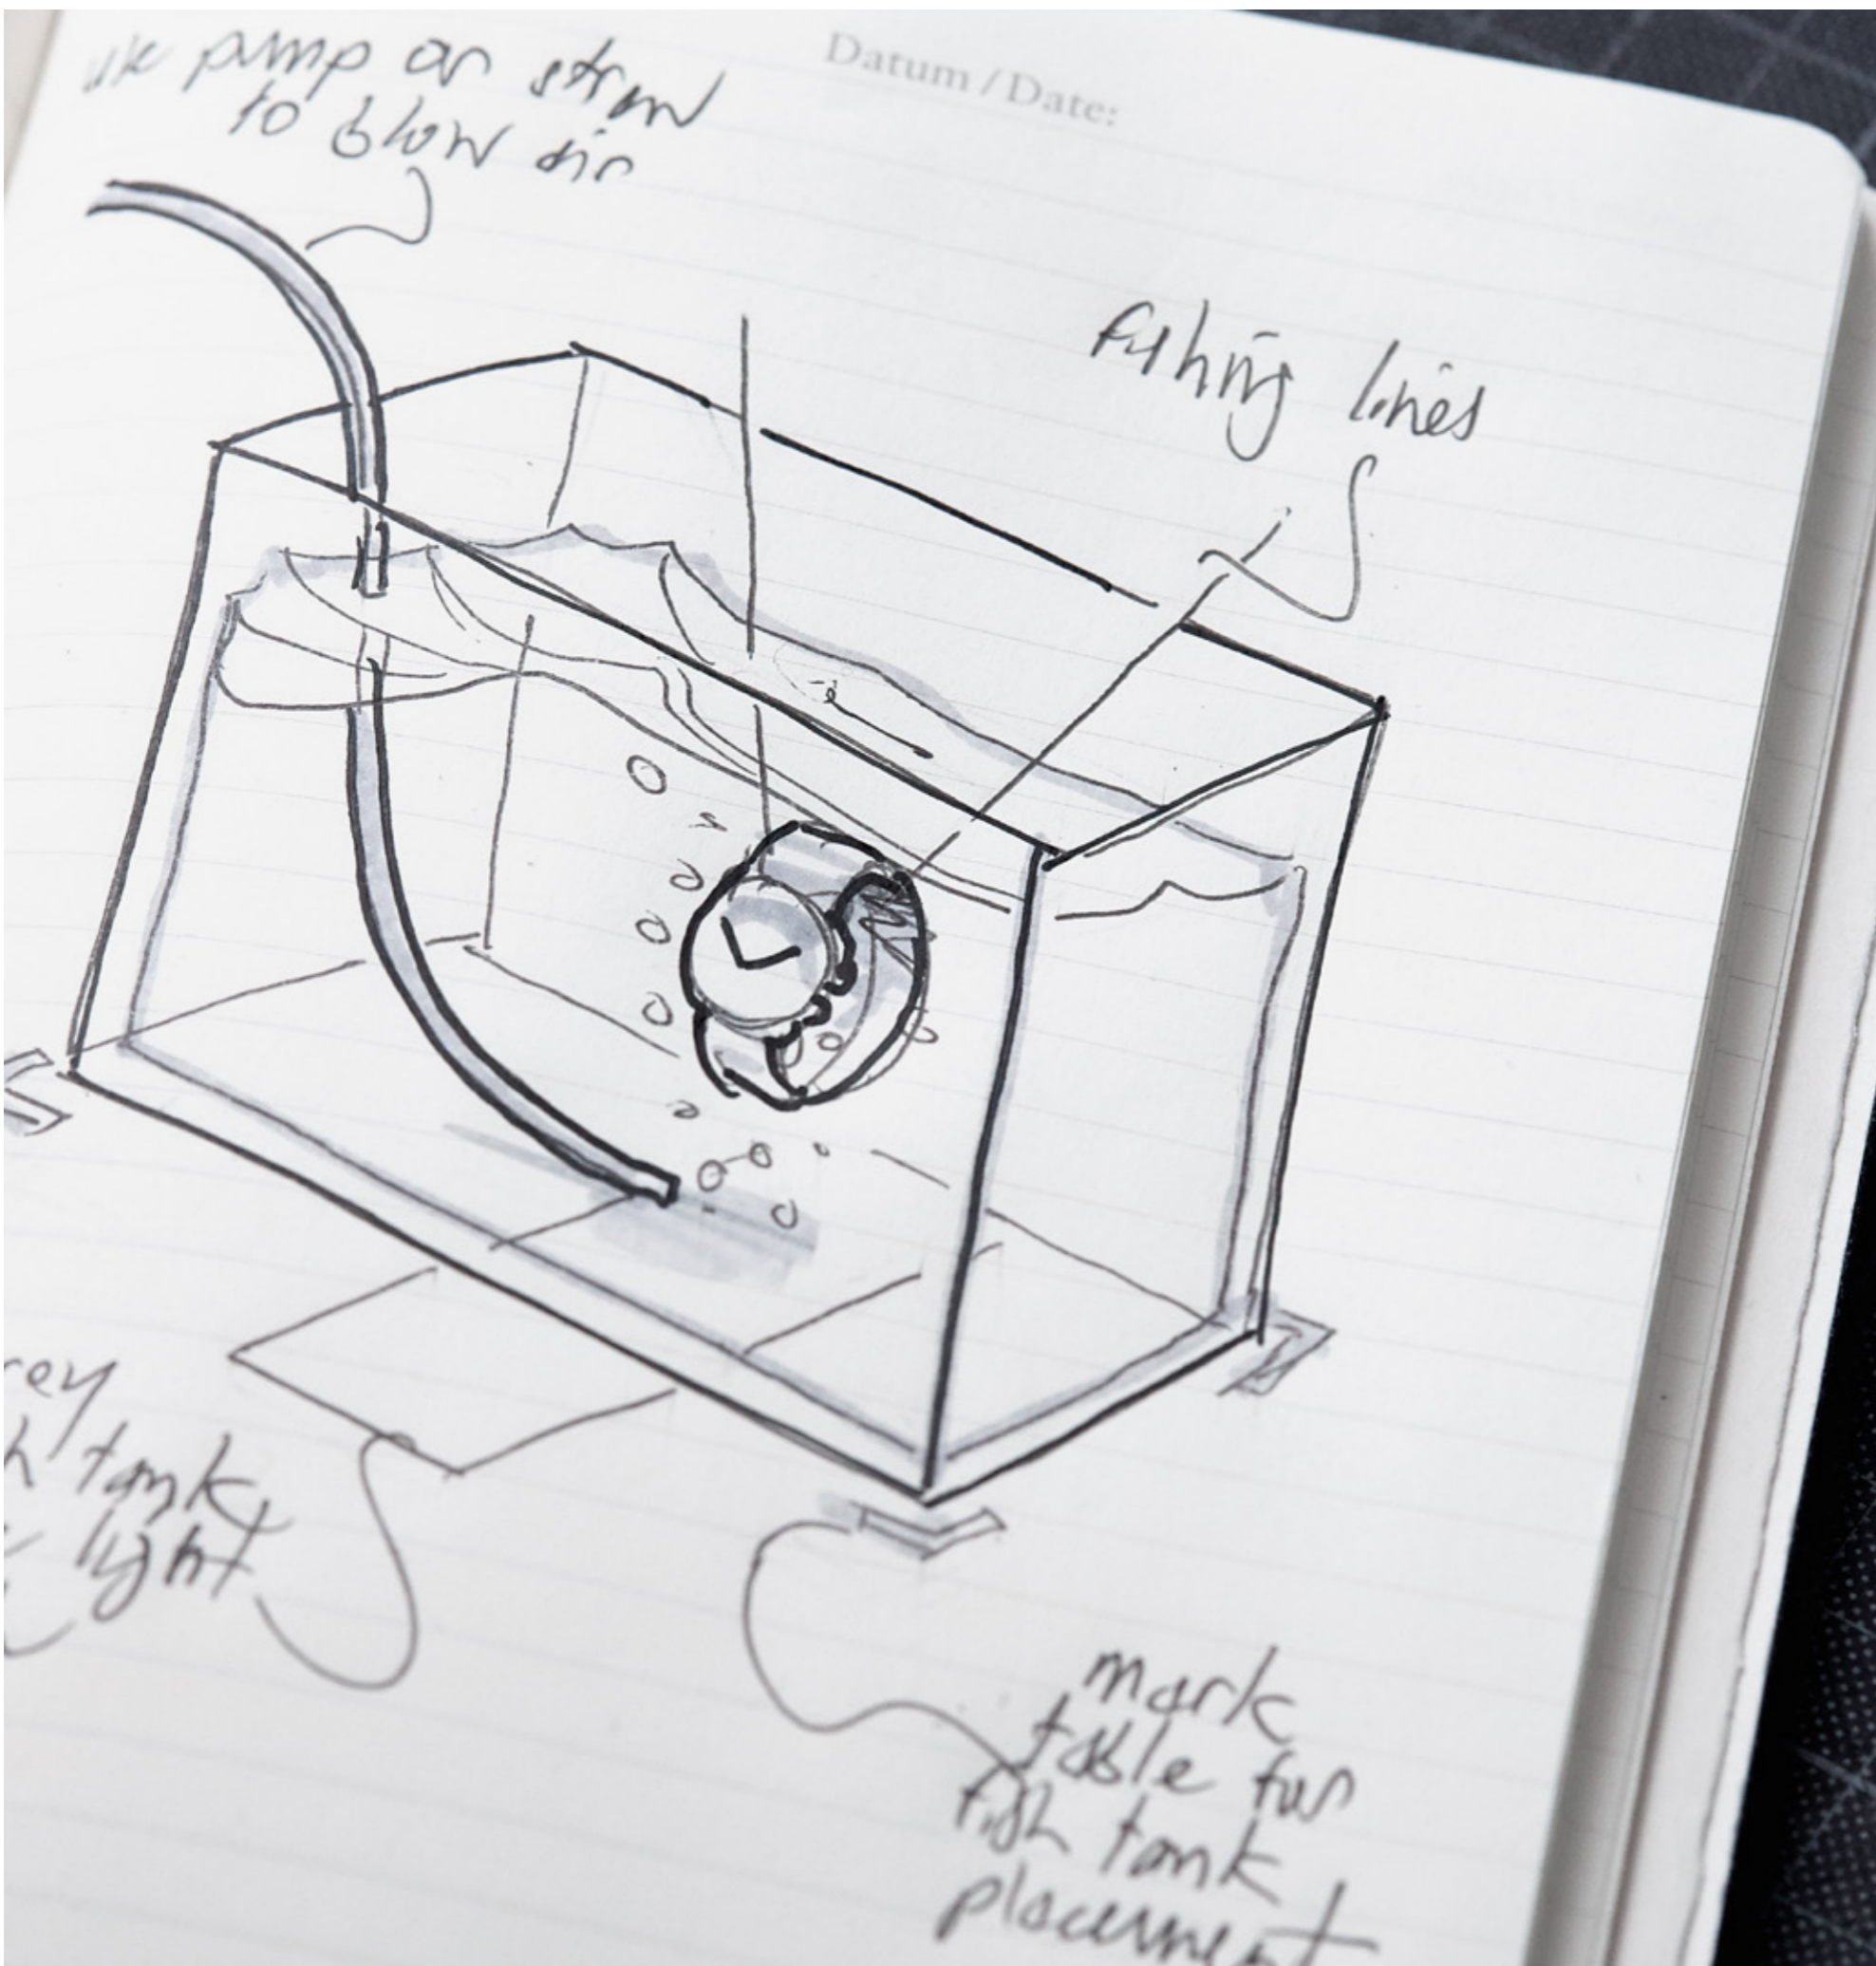 use pump or straw
to blow air
Datum / Date:
fishing lines
tank
light
mark
table for
fish tank
placement